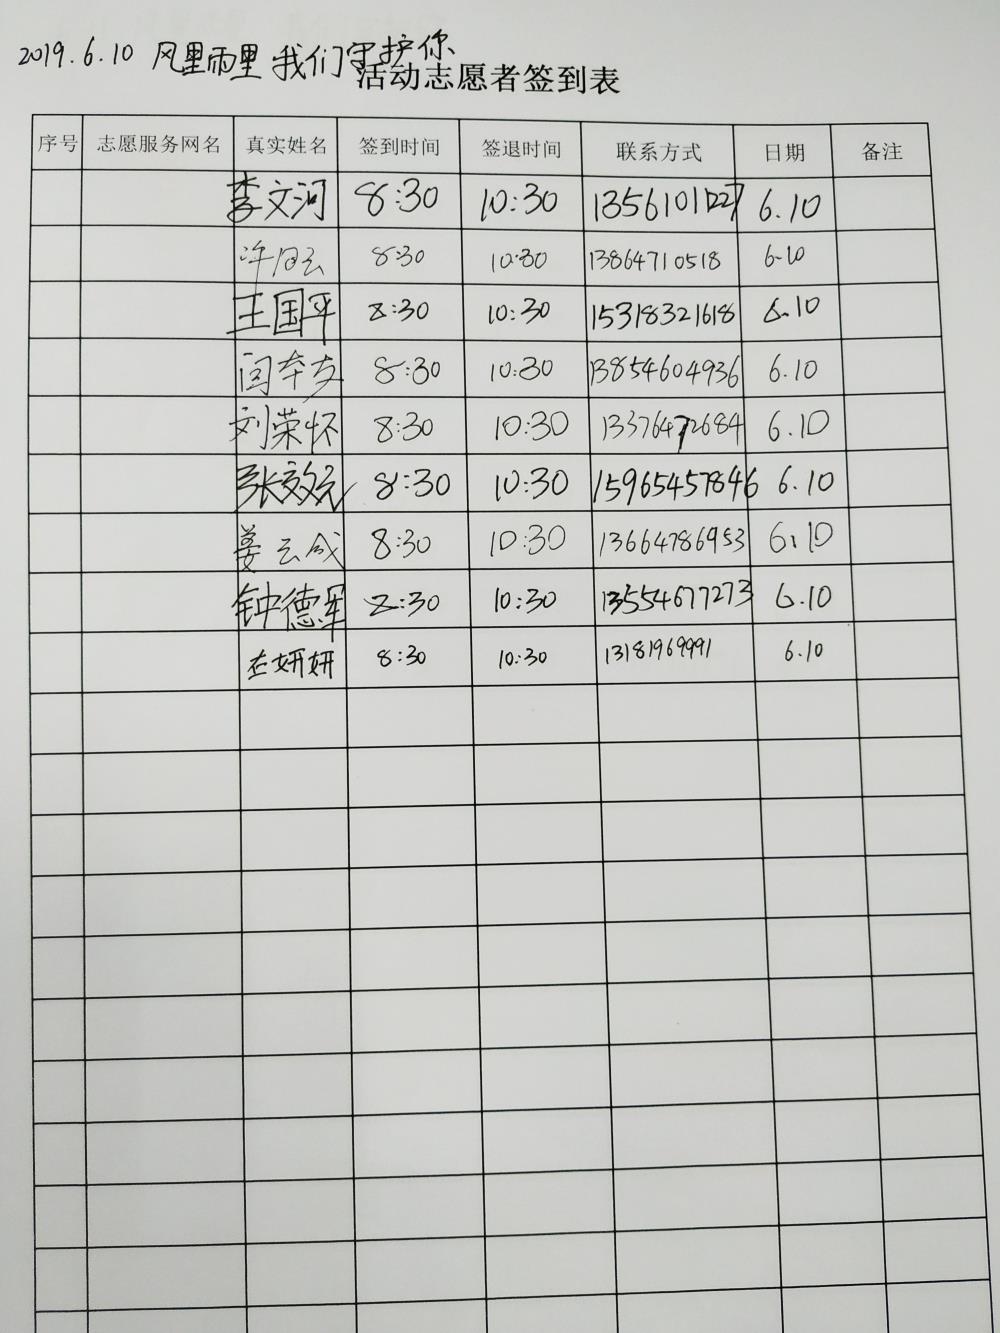 2019.6.10 风里雨里 我们守护你
活动志愿者签到表
序号 志愿服务网名 真实姓名 签到时间 签退时间 联系方式 日期 备注
李文河 8:30 10:30 13561011227 6.10
8:30 10:30 13864710518 6.10
王国平 8:30 10:30 15318321618 6.10
闫本友 8:30 10:30 13854604936 6.10
刘荣怀 8:30 10:30 13376472684 6.10
张效元 8:30 10:30 15965457846 6.10
姜云成 8:30 10:30 13664786953 6.10
钟德军 8:30 10:30 13554677273 6.10
妍妍 8:30 10:30 13181969991 6.10